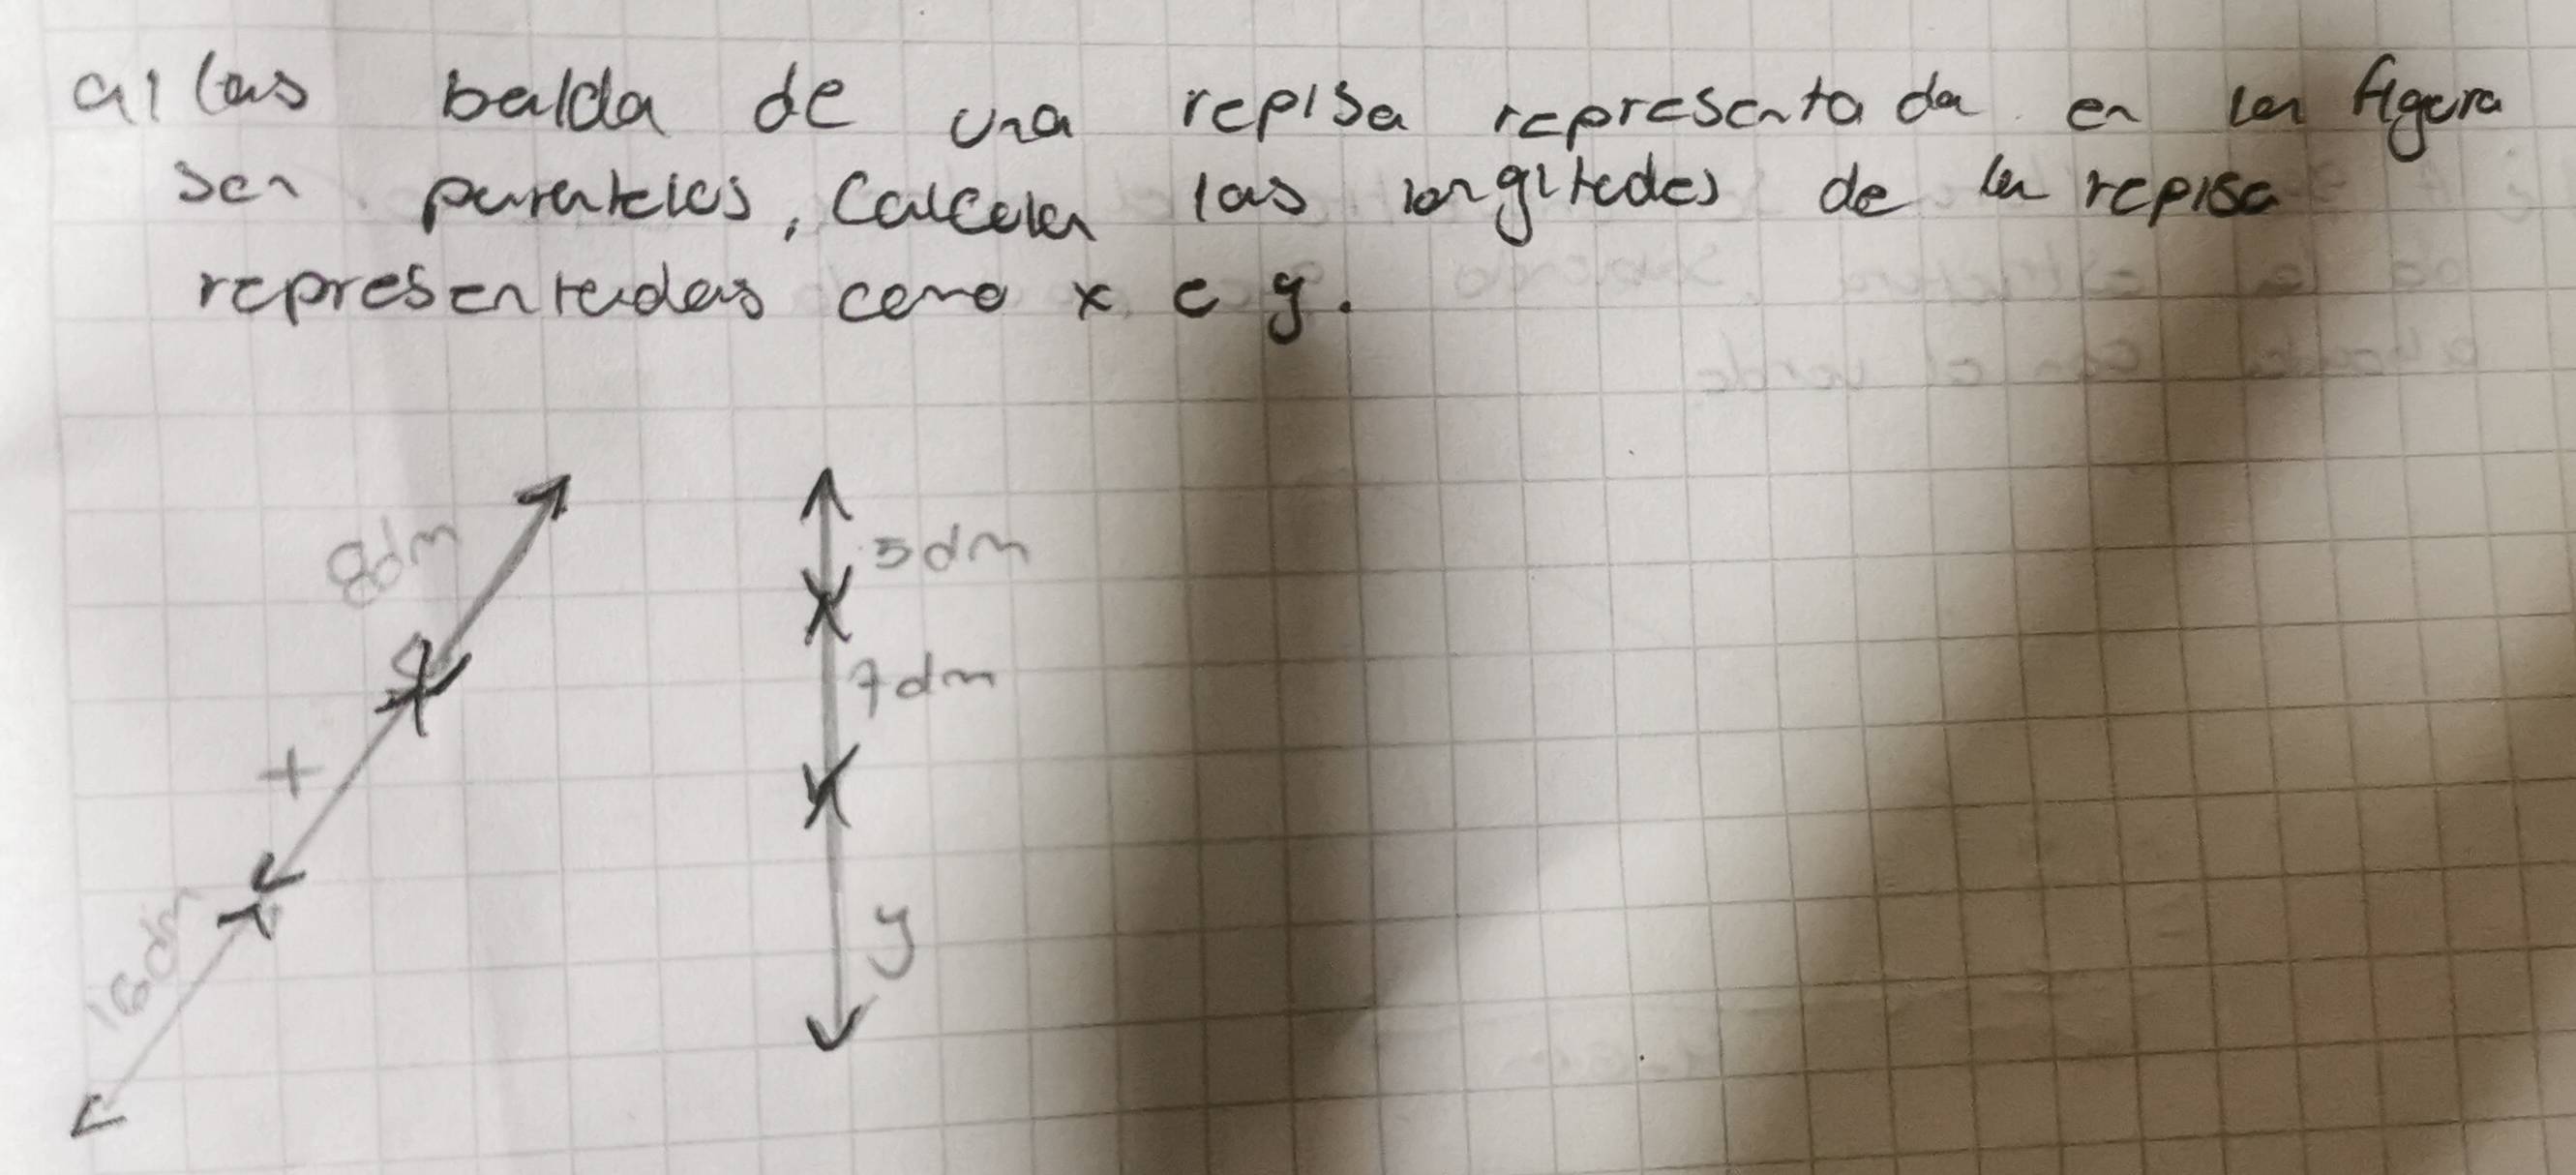 a) las balda de una repisa representada en la figura
son paralelas, Calcular las longitudes de la repisa
representadas como x e y.
8dm
5dm
7dm
x
16dm
y